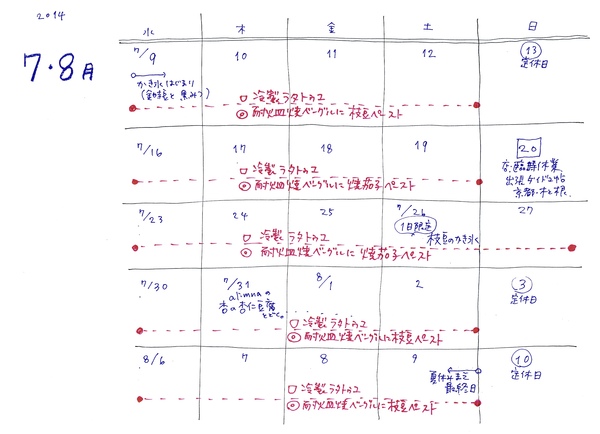 2014
7・8月
水 木 金 土 日
7/9 10 11 12 13
定休日
かき氷はじまり
□ 冷製ラタトゥユ
◎ 耐火皿焼ベーグルに枝豆ペースト
7/16 17 18 19 20
臨時休業
□ 冷製ラタトゥユ
◎ 耐火皿焼ベーグルに焼茄子ペースト
京都・木と根
7/23 24 25 7/26 27
1日限定
枝豆のかき氷
□ 冷製ラタトゥユ
◎ 耐火皿焼ベーグルに焼茄子ペースト
7/30 7/31 8/1 2 3
定休日
杏の杏仁豆腐
□ 冷製ラタトゥユ
◎ 耐火皿焼ベーグルに枝豆ペースト
8/6 7 8 9 10
定休日
夏休みまえ
最終日
□ 冷製ラタトゥユ
◎ 耐火皿焼ベーグルに枝豆ペースト